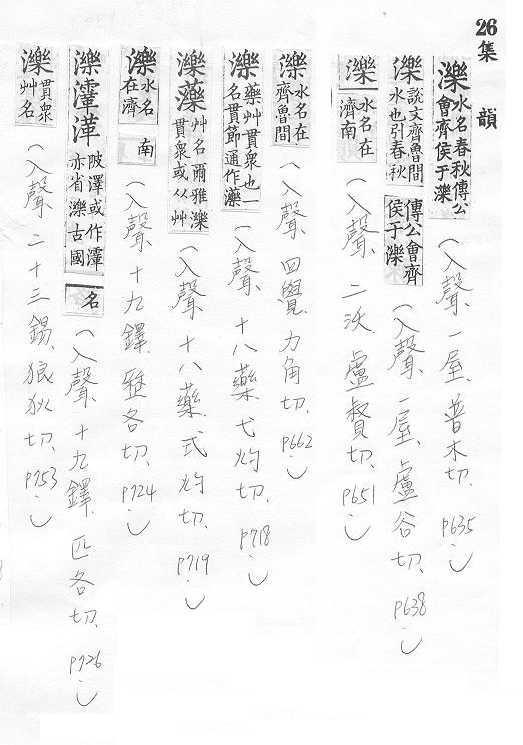 26
集韻
濼水名春秋傳公會齊侯于濼(入聲一屋、普木切、P635。)
濼說文齊魯間水也引春秋傳公會齊侯于濼(入聲、一屋、盧谷切、P638。)
濼水名在濟南(入聲、二沃、盧督切、P651。)
濼水名在齊魯間(入聲、四覺、力角切、P662。)
藥艸貫衆也一名貫節通作濼(入聲、十八藥、弋灼切、P718。)
濼藥艸名爾雅濼貫衆或从艸(入聲、十八藥、式灼切、P719。)
濼水名在濟南(入聲、十九鐸、各切、P724。)
濼陂澤或作亦省濼古國名(入聲、十九鐸、匹各切、P726。)
濼貫衆艸名(入聲、二十三錫、狼狄切、P753。)